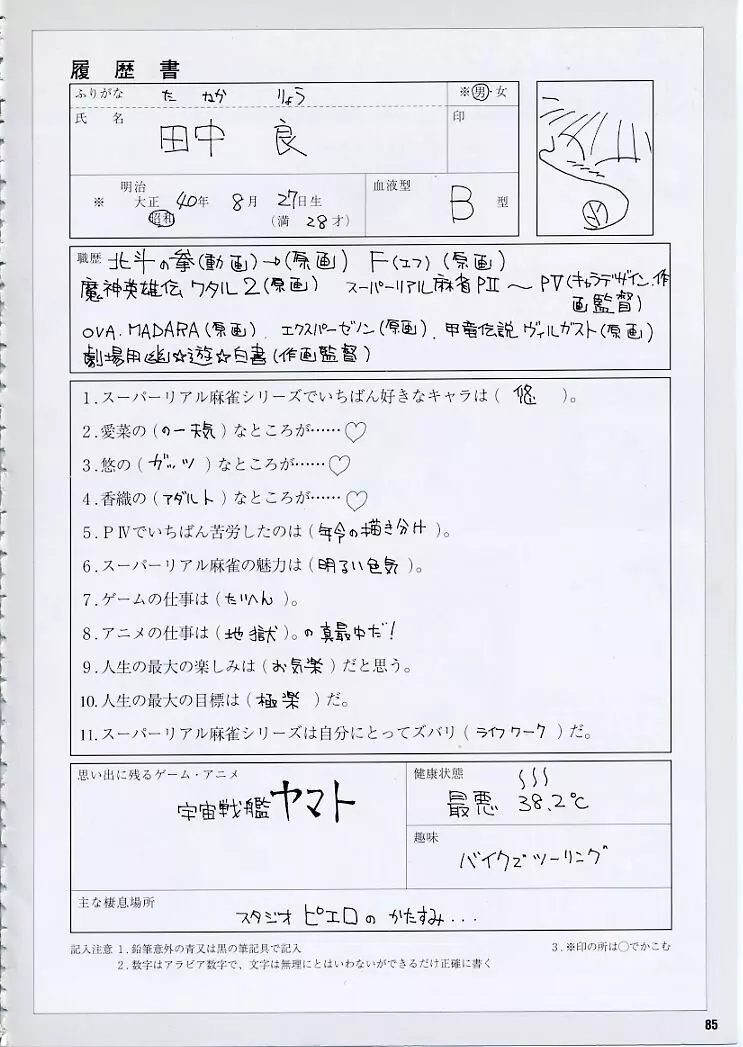 履歴書
ふりがな た なか りょう ※男・女
氏 名 田中 良 印
明治
※ 大正 40年 8月 27日生 血液型 B 型
昭和 (満 28才)
職歴 北斗の拳(動画)→(原画) F(エフ)(原画)
魔神英雄伝 ワタル2(原画) スーパーリアル麻雀PⅡ〜PⅤ(キャラデザイン.作画監督)
OVA.MADARA(原画). エクスパーゼノン(原画). 甲竜伝説ヴィルガスト(原画)
劇場用幽☆遊☆白書(作画監督)
1.スーパーリアル麻雀シリーズでいちばん好きなキャラは( 悠 )。
2.愛菜の(のー天気)なところが……♡
3.悠の(ガッツ)なところが……♡
4.香織の(アダルト)なところが……♡
5.PⅣでいちばん苦労したのは(年令の描き分け)。
6.スーパーリアル麻雀の魅力は(明るい色気)。
7.ゲームの仕事は(たいへん)。
8.アニメの仕事は(地獄)。の真最中だ!
9.人生の最大の楽しみは(お気楽)だと思う。
10.人生の最大の目標は(極楽)だ。
11.スーパーリアル麻雀シリーズは自分にとってズバリ(ライフワーク)だ。
思い出に残るゲーム・アニメ
宇宙戦艦ヤマト
健康状態
最悪 38.2℃
趣味
バイクでツーリング
主な棲息場所
スタジオ ピエロの かたすみ...
記入注意 1.鉛筆意外の青又は黒の筆記具で記入 3.※印の所は○でかこむ
2.数字はアラビア数字で、文字は無理にとはいわないができるだけ正確に書く
85